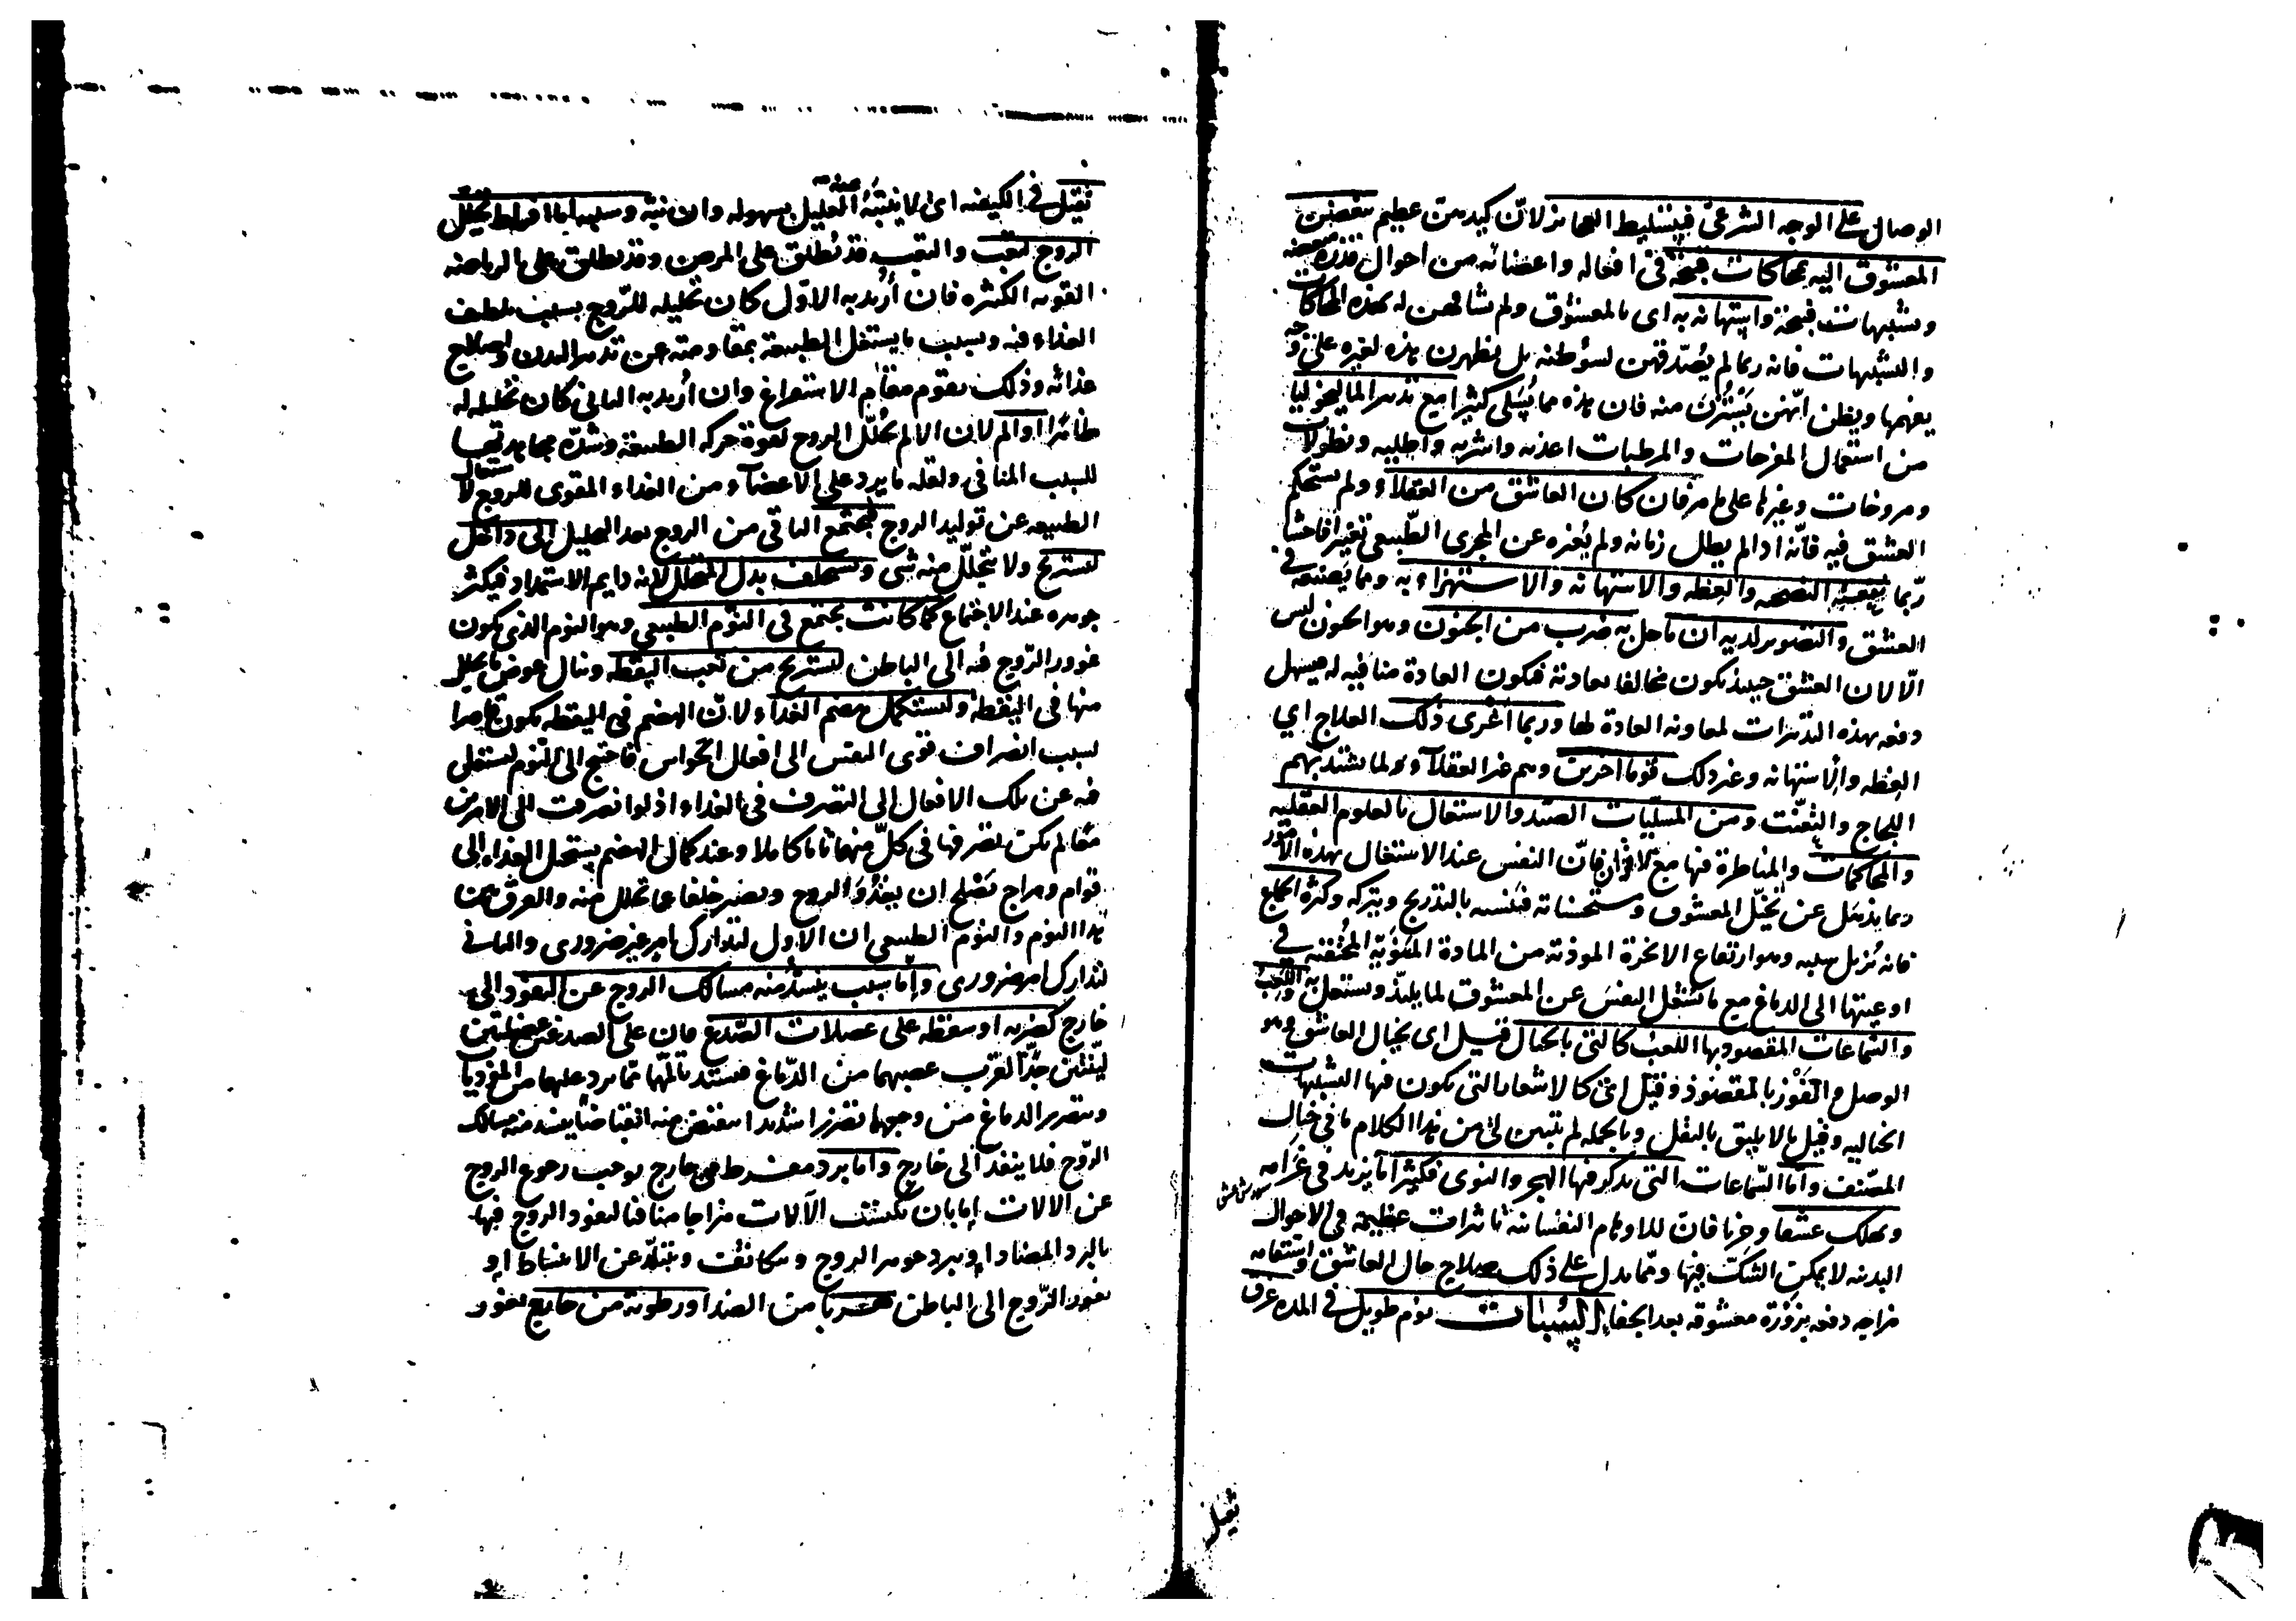 الوصال على الوجه الشرعى فبتسليط العجائز لان كيدهن عظيم ببغضن
المعشوق اليه بمحاكات قبيحة فى افعاله واعضائه من احوال قذرة مبغضه
وتشبيهات قبيحة واستهانة به اى بالمعشوق ولم تشافهن له بهذه المحاكات
والتشبيهات فانه ربما لم يصدقهن لسؤظنه بل يظهرن هذه لغيره على وجه
يفهمها ويظن انهن يسترن منه فان هذه مما يسلى كثيرا مع تدبير الماليخوليا
من استعمال المفرحات والمرطبات اغذيه واشربه واطليه ونطولات
ومروخات وغيرها على ما مر فان كان العاشق من العقلاء ولم يستحكم
العشق فيه فانه اذا لم يطل زمانه ولم يغيره عن المجرى الطبيعى تغيرا فاحشا
ربما نفعته النصيحه والعظه والاستهانه والاستهزاء به وبما يصنعه فى
العشق والتصوير لديه ان ما حل به ضرب من الجنون وهو الجنون ليس
الا لان العشق حينئذ يكون مخالفا لعادته فيكون العادة منافيه له فيسهل
دفعه بهذه التدبيرات لمعاونه العادة لها وربما اغرى ذلك العلاج اي
العظه والاستهانه وغير ذلك قوما اخرين وهم غير العقلاء ولما يشتد بهم
اللجاج والتعنت ومن المسليات الصيد والاشتغال بالعلوم العقليه
والمحاكمات والمناظرة فيها مع الاقران فان النفس عند الاشتغال بهذه الامور
ربما يذهل عن تخيل المعشوق ومستحسناته فتنسيه بالتدريج ويتركه وكثرة الجماع
فانه يزيل سببه وهو ارتفاع الابخرة الموذية من المادة المنوية المحتقنه فى
اوعيتها الى الدماغ مع ما يشغل النفس عن المعشوق لما يلتذ ويشتغل به واللعب
والسماعات المقصود بها اللعب كالتى بالخيال قيل اى بخيال العاشق وهو
الوصل والفوز بالمقصود وقيل اى كالاشعار التى يكون فيها التشبيهات
الخياليه وقيل بالا يليق بالنقل وبالجمله لم يتبين لى من هذا الكلام ما فى خيال
المصنف واما السماعات التى يذكر فيها الهجر والنوى فكثيرا ما يزيد فى غرامه
ويهلك عشقا وحزنا فان للاوهام النفسانيه تاثيرات عظيمه فى الاحوال
البدنيه لا يمكن الشك فيها ومما يدل على ذلك صلاح حال العاشق واستقامه
مزاجه دفعه بزورة معشوقه بعد الجفاء السبات نوم طويل فى المده غرق
ثقيل
ثقيل فى الكيفيه اى لا ينتبه منه العليل بسهوله وان نبه وسببه اما افراط تحلل
الروح لتعب والتعب قد يطلق على المرض وقد يطلق على الرياضه
القويه الكثيره فان اريد به الاول كان تحليله للروح بسبب تلطف
الغذاء فيه وبسبب ما يشتغل الطبيعة بمقاومته عن تدبير البدن واصلاح
غذائه وذلك يقوم مقام الاستفراغ وان اريد به الثانى كان تحليله له
ظاهرا او الم لان الالم يحلل الروح لقوة حركه الطبيعة وشدة مجاهدتها
للسبب المنافى ولقله ما يرد على الاعضاء من الغذاء المقوى للروح لاشتغال
الطبيعه عن توليد الروح فيجتمع الباقى من الروح بعد التحليل الى داخل
ليستريح ولا يتحلل منه شى ويستخلف بدل المتحلل لانه دايم الاستمداد فيكثر
جوهره عند الاجتماع كما كانت يجتمع فى النوم الطبيعى وهو النوم الذى يكون
غوور الروح فيه الى الباطن ليستريح من تعب اليقظه وينال عوض ما يحلل
منها فى اليقظه وليستكمل هضم الغذاء لان الهضم فى اليقظه يكون قاصرا
لسبب انصراف قوى النفس الى افعال الحواس فاحتيج الى النوم ليستعلى
فيه عن تلك الافعال الى التصرف فى الغذاء اذ لو انصرفت الى الامرين
معا لم يكن تصرفها فى كل منهما تاما كاملا وعند كمال الهضم يستحيل الغذاء الى
قوام ومزاج يصلح ان يغذو الروح ويصير خلفا عما تحلل منه والفرق بين
هذا النوم والنوم الطبيعى ان الاول لتدارك امر غير ضرورى والثانى
لتدارك امر ضرورى واما سبب ينسد منه مسالك الروح عن النفوذ الى
خارج كضربه او سقطه على عضلات الصدغ فان على الصدغين عضلتين
لينتين جدا لقرب عصبهما من الدماغ فيشتد تالمها مما يرد عليهما من الموذيات
ويتضرر الدماغ من وجعهما تضررا شديدا فينقبض منه انقباضا ينسد منه مسالك
الروح فلا ينفذ الى خارج واما برد مفرط من خارج يوجب رجوع الروح
عن الالات اما بان يكتسب الآلات مزاجا منافيا لنفوذ الروح فيها
بالبرد المضاد او يبرد جوهر الروح ويتكاثف ويتبلد عن الانبساط او
يغور الروح الى الباطن هربا من الضد او رطوبة من مايع يغور